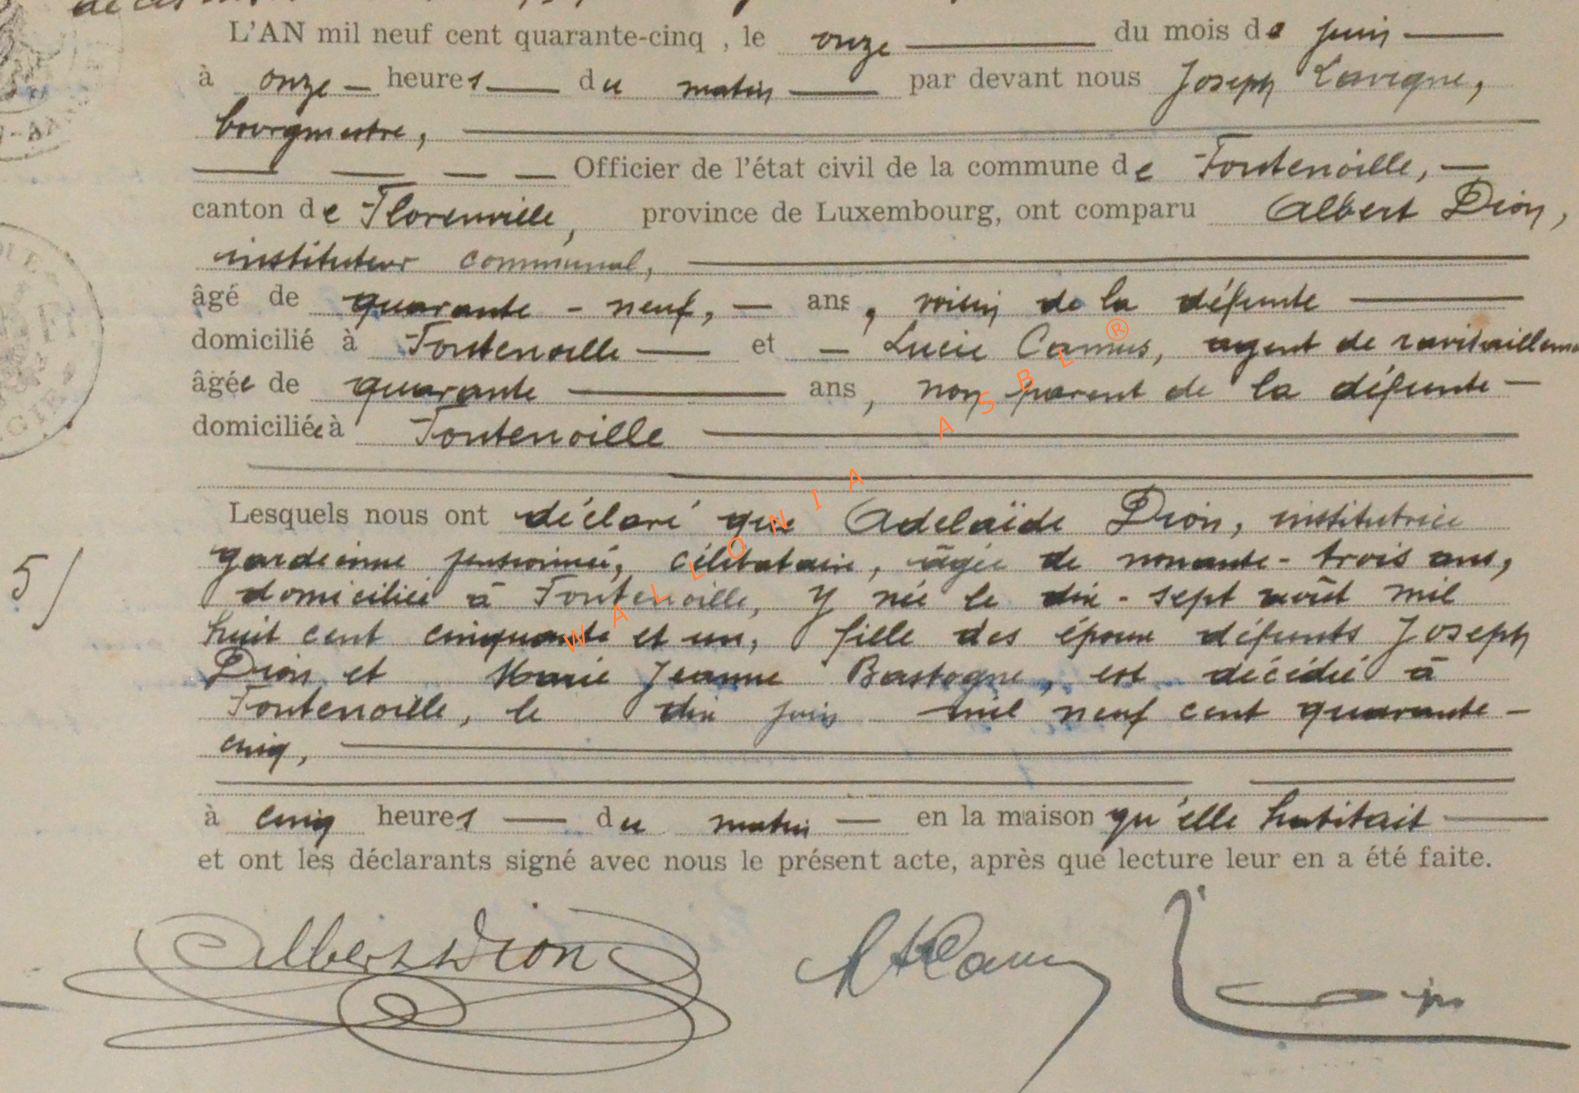 L'AN mil neuf cent quarante-cinq , le onze du mois de juin
à onze heures du matin par devant nous Joseph Lavigne,
bourgmestre,
Officier de l'état civil de la commune de Fontenoille,
canton de Florenville, province de Luxembourg, ont comparu Albert Dion,
instituteur communal,
âgé de quarante - neuf, ans, voisin de la défunte
domicilié à Fontenoille et Lucie Camus, agent de ravitaillem
âgée de quarante ans, non parent de la défunte
domiciliée à Fontenoille
Lesquels nous ont déclaré que Adelaïde Dion, institutrice
gardienne pensionnée, célibataire, âgée de nonante-trois ans,
5/ domiciliée à Fontenoille, y née le dix-sept août mil
huit cent cinquante et un, fille des époux défunts Joseph
Dion et Marie Jeanne Bastogne, est décédée à
Fontenoille, le dix juin mil neuf cent quarante-
cinq,
à cinq heures du matin en la maison qu'elle habitait
et ont les déclarants signé avec nous le présent acte, après que lecture leur en a été faite.
Albert Dion
WALLONIA ASBL ®